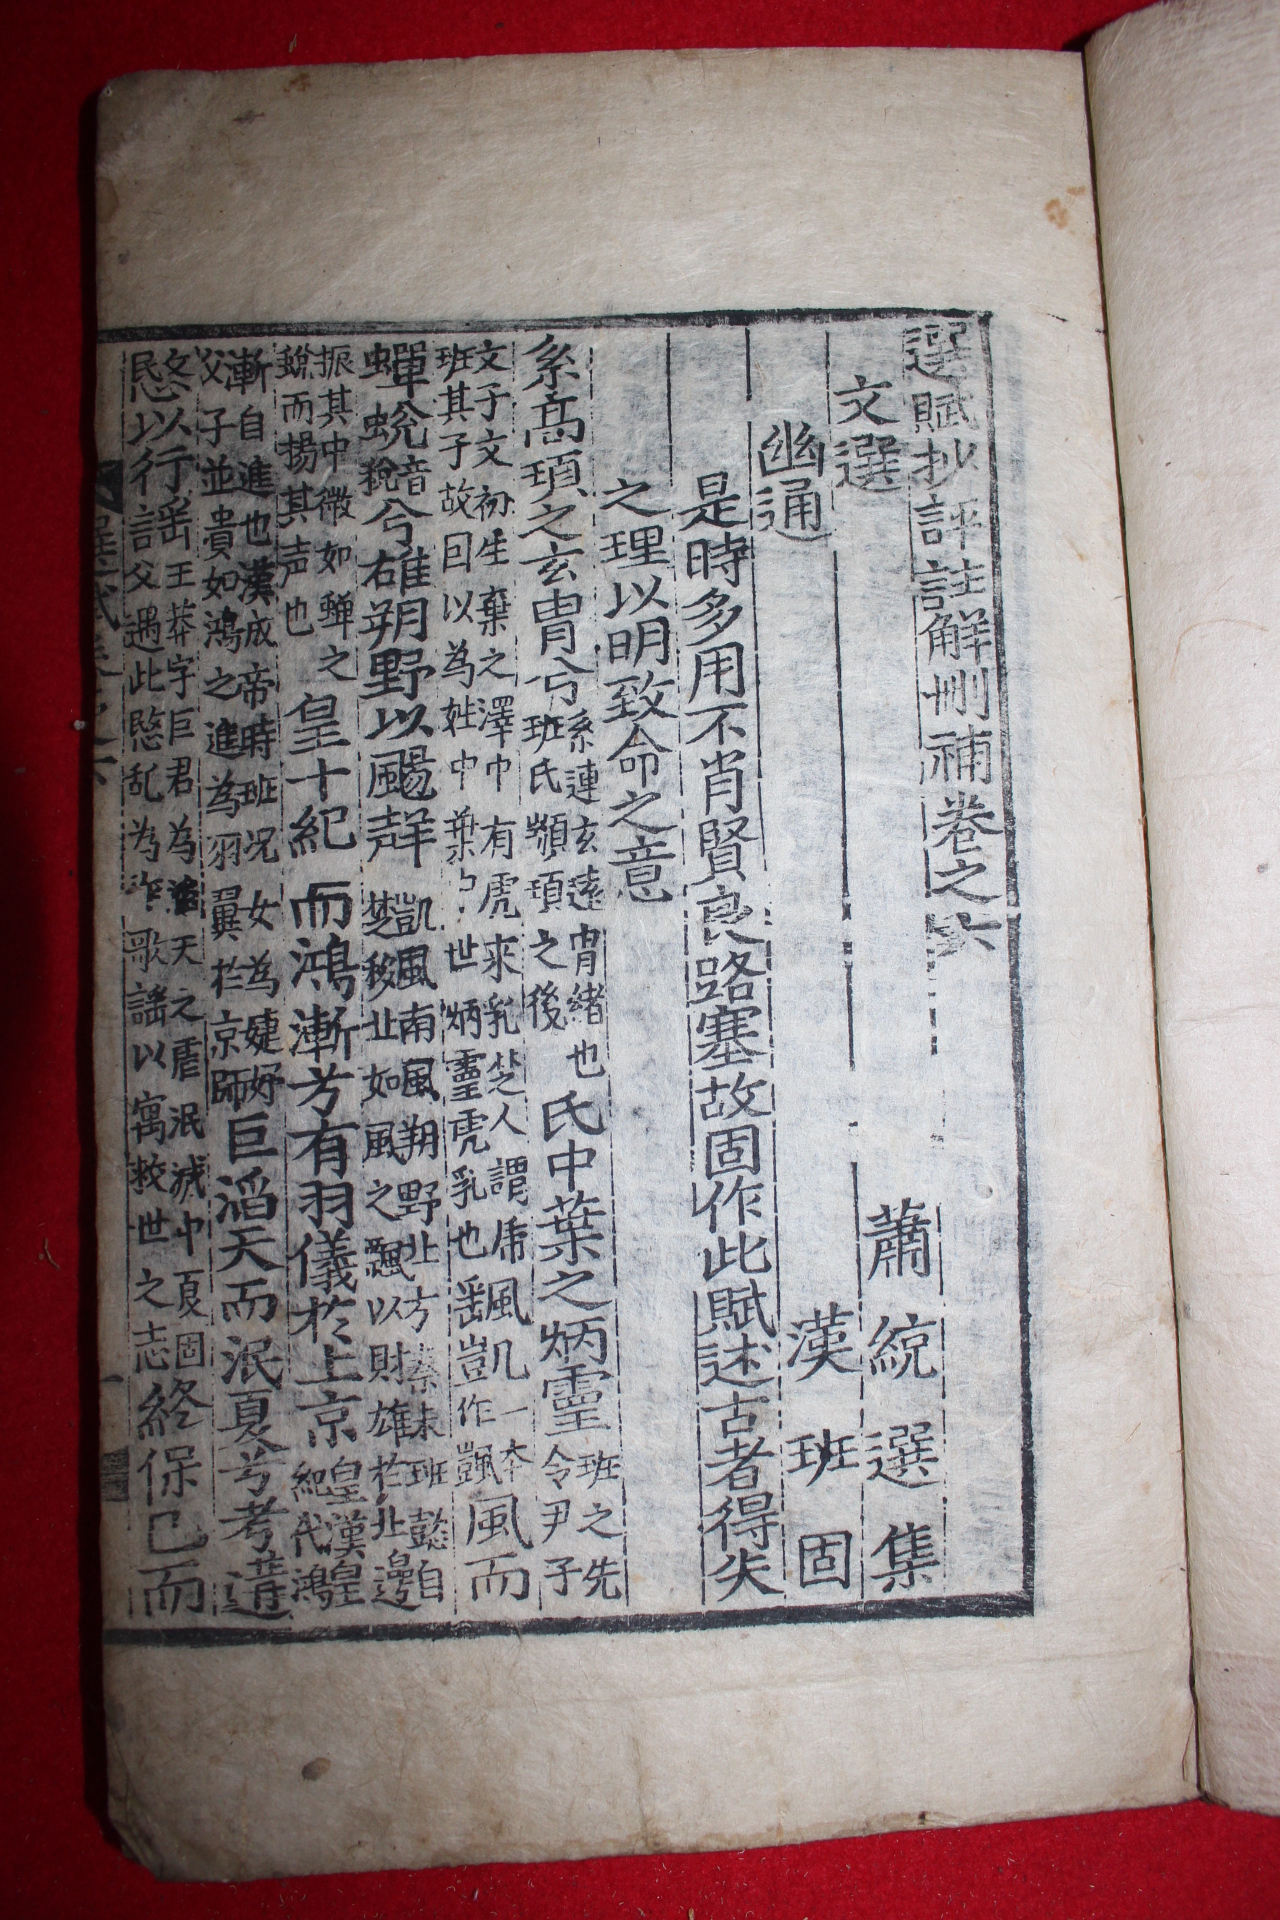 選賦抄評註解刪補卷之六
文選 蕭統選集
幽通 漢班固
是時多用不肖賢良路塞故固作此賦述古者得失
之理以明致命之意
系高頊之玄冑兮系連玄遠冑緒也班氏顓頊之後氏中葉之炳靈班之先令尹子
文子文初生棄之澤中有虎來乳楚人謂虎班其子故囙以為姓中葉中世炳靈虎乳也颽豈作凱風凱一本風而
蟬蛻音稅兮雄朔野以颺聲凱風南風朔野北方秦末班懿自楚移北如風之飄以財雄於北邊
振其中微如蟬之蛻而揚其声也皇十紀而鴻漸兮有羽儀於上京皇漢皇紀代鴻
漸自進也漢成帝時班况女為婕妤父子並貴如鴻之進為羽翼於京師巨滔天而泯夏兮考遘
愍以行謡王莽字巨君為滔天之虐泯滅中夏固父遇此愍乱為作歌謠以寓救世之志終保己而